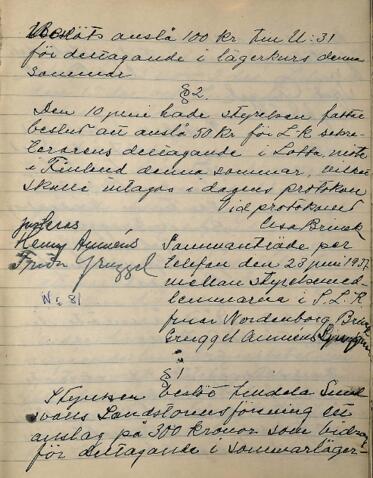 Beslöts anslå 100 kr till U:31
för deltagande i lägerkurs denna
sommar
§ 2.
Den 10 juni hade styrelsen fattat
beslut att anslå 50 kr för L.K. sekre-
terarens deltagande i Lotta möte
i Finland denna sommar, vilket
skulle intagas i dagens protokoll
Vid protokollet
Elsa Brusk
justeras
Henny Amnéus
Frida Gruggel
Nr. 81
Sammanträde per
telefon den 23 juni 1937
mellan styrelsemed-
lemmarna i S.L.K
fruar Nordenborg
Gruggel Amnéus
§ 1
Styrelsen beslöt tilldela Sund
svalls Landstormsförening ett
anslag på 300 kronor som bidrag
för deltagande i sommarläger-